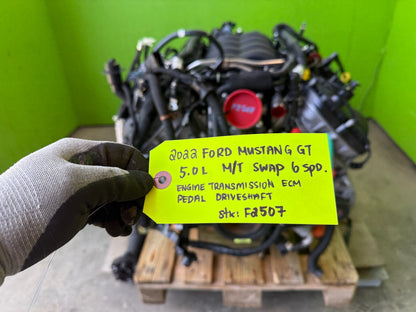 F2507
2022 FORD MUSTANG GT
5.0L M/T SWAP 6 SPD.
ENGINE TRANSMISSION ECM
PEDAL DRIVESHAFT
STK: F2507